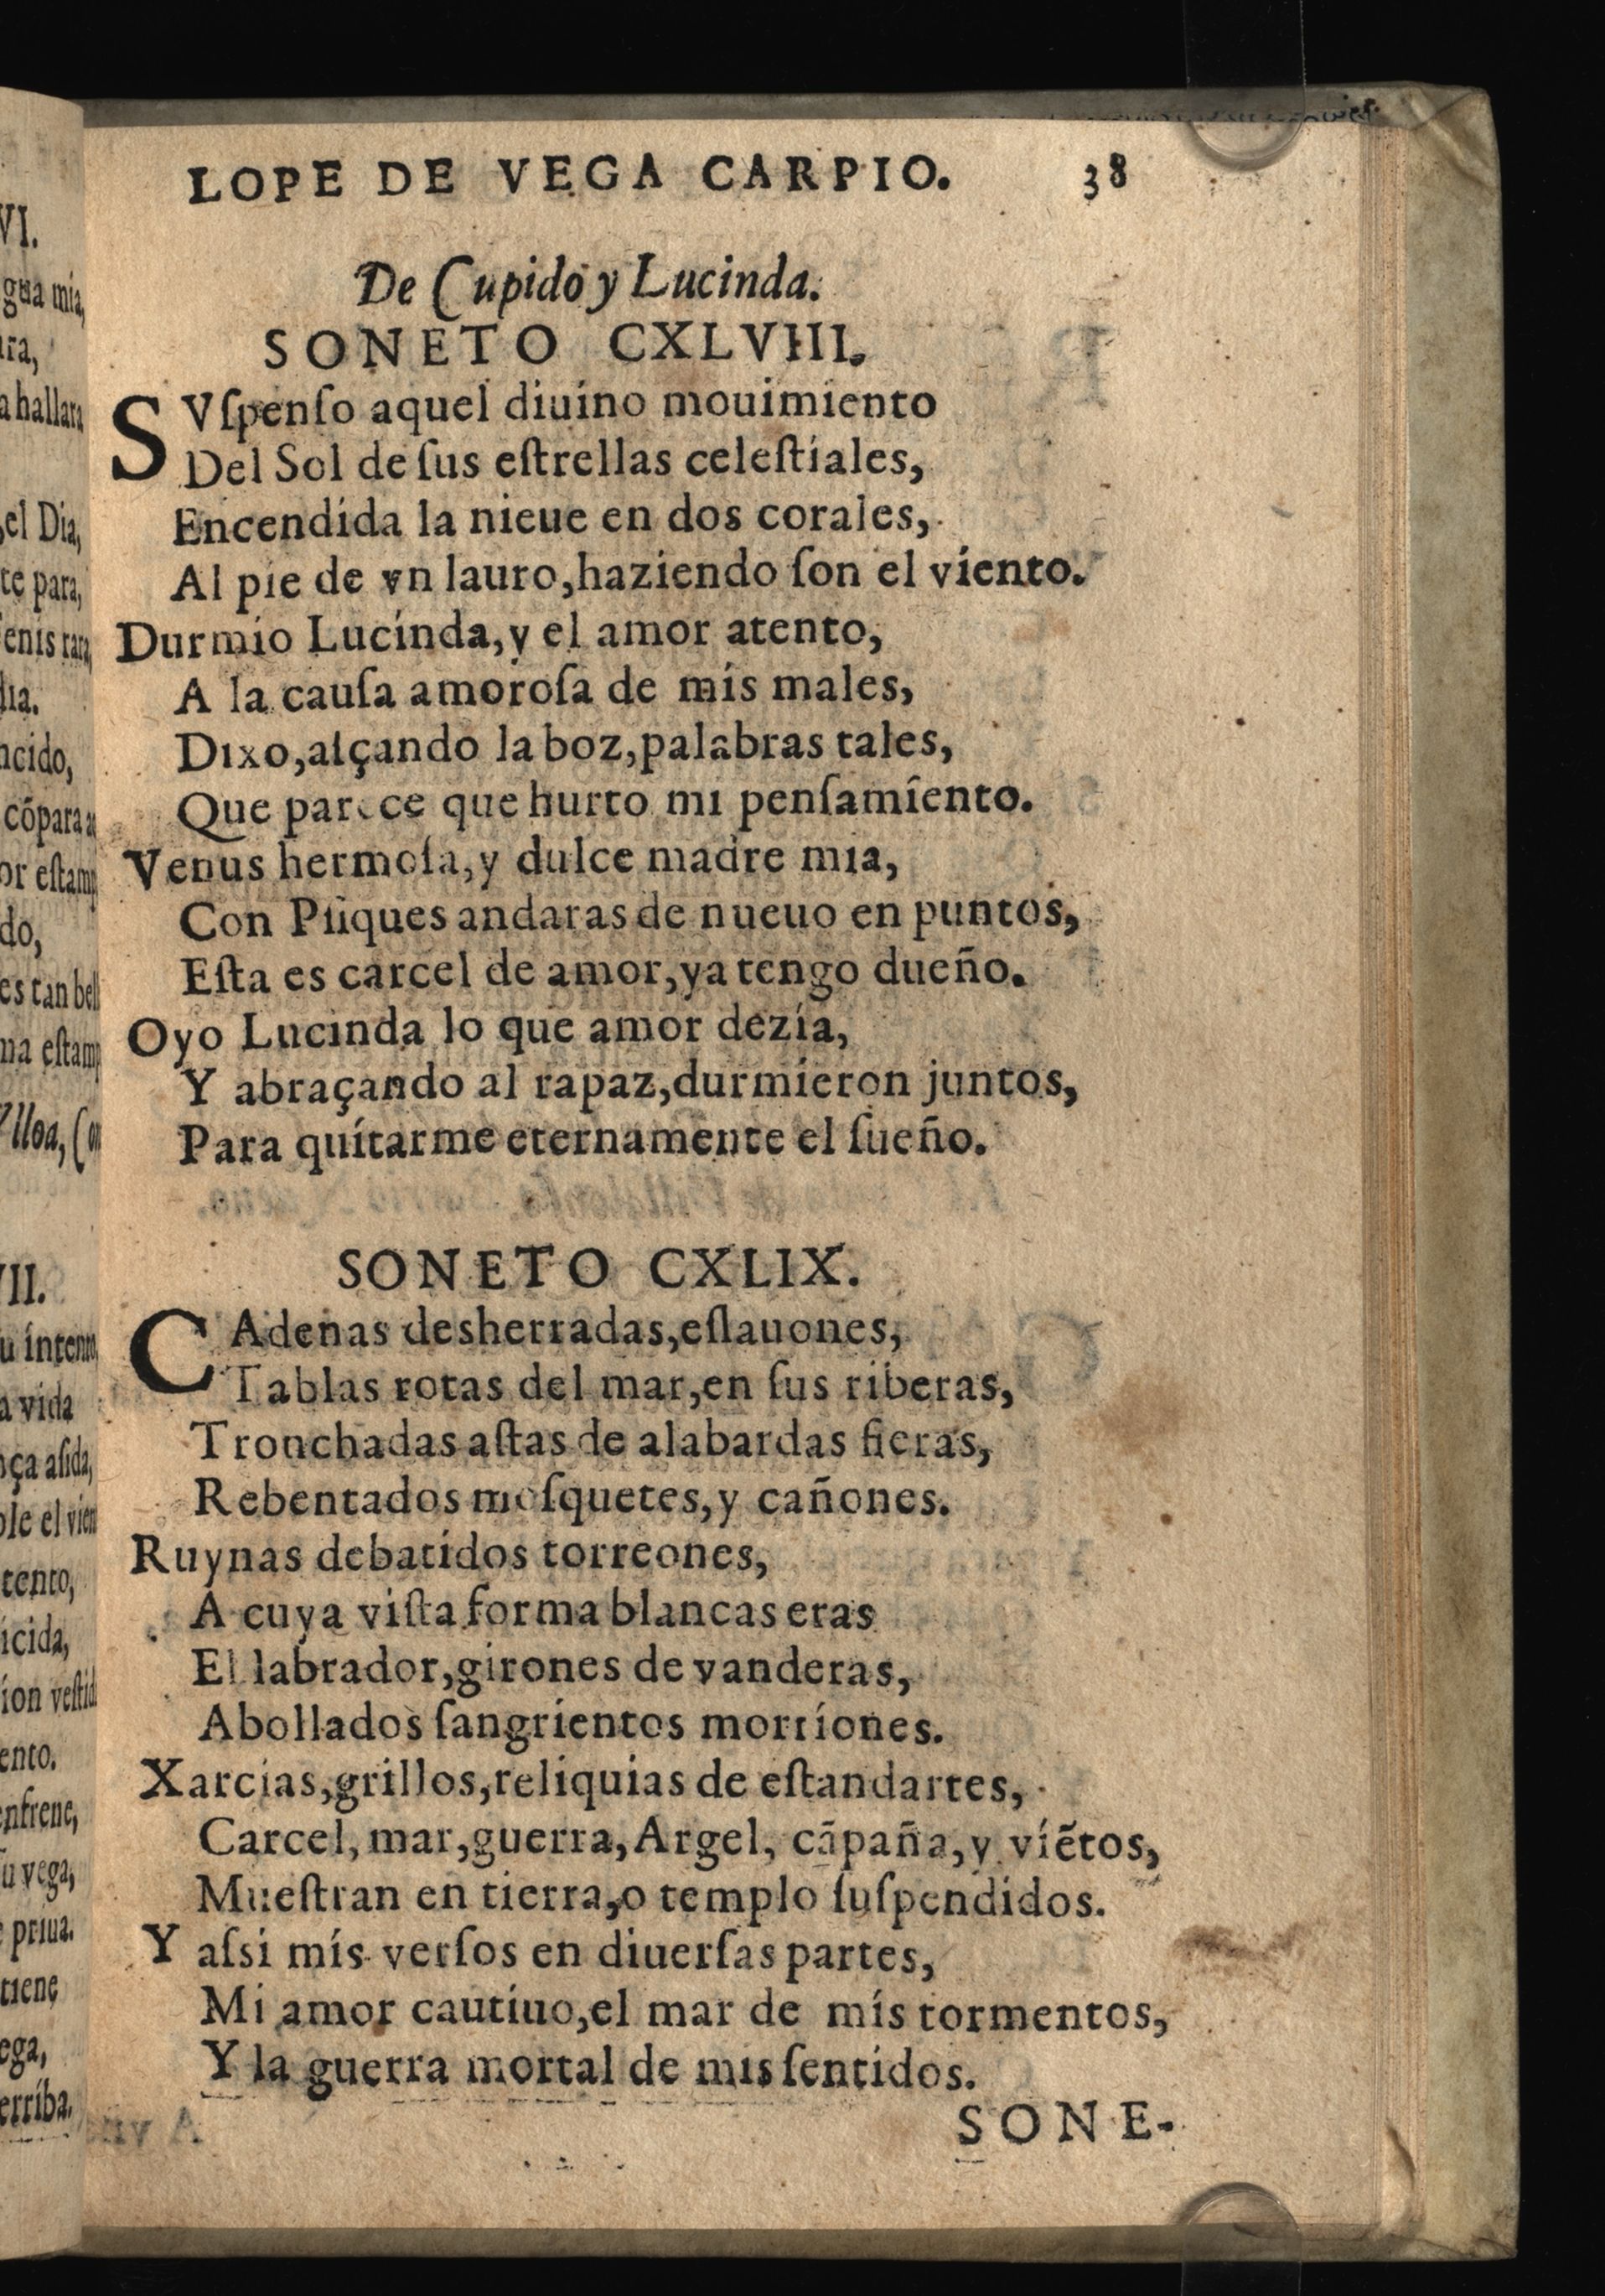 LOPE DE VEGA CARPIO. 38
De Cupido y Lucinda.
SONETO CXLVIII.
SVſpenſo aquel diuino mouimiento
Del Sol de ſus eſtrellas celeſtiales,
Encendida la nieue en dos corales,
Al pie de vn lauro,haziendo ſon el viento.
Durmio Lucinda,y el amor atento,
A la cauſa amoroſa de mis males,
Dixo,alçando la boz,palabras tales,
Que parece que hurto mi penſamiento.
Venus hermoſa,y dulce madre mia,
Con Pſiques andaras de nueuo en puntos,
Eſta es carcel de amor,ya tengo dueño.
Oyo Lucinda lo que amor dezia,
Y abraçando al rapaz,durmieron juntos,
Para quitarme eternamente el ſueño.
SONETO CXLIX.
CAdenas desherradas,eſlauones,
Tablas rotas del mar,en ſus riberas,
Tronchadas aſtas de alabardas fieras,
Rebentados moſquetes,y cañones.
Ruynas debatidos torreones,
A cuya viſta forma blancas eras
El labrador,girones de vanderas,
Abollados ſangrientos morriones.
Xarcias,grillos,reliquias de eſtandartes,
Carcel, mar,guerra,Argel, cãpaña,y viẽtos,
Mueſtran en tierra,o templo ſuſpendidos.
Y aſsi mis verſos en diuerſas partes,
Mi amor cautiuo,el mar de mis tormentos,
Y la guerra mortal de mis ſentidos.
SONE-
VI.
gua mia,
a hallara
el Dia,
te para,
enis rara
ncido,
cõpara
do,
es tan bell
Vlloa, Con
VII.
u intento
a vida
ça aſida,
tento,
icida,
ion veſtid
ento.
enfrene,
ſu vega,
priua.
tiene
ega,
erriba.